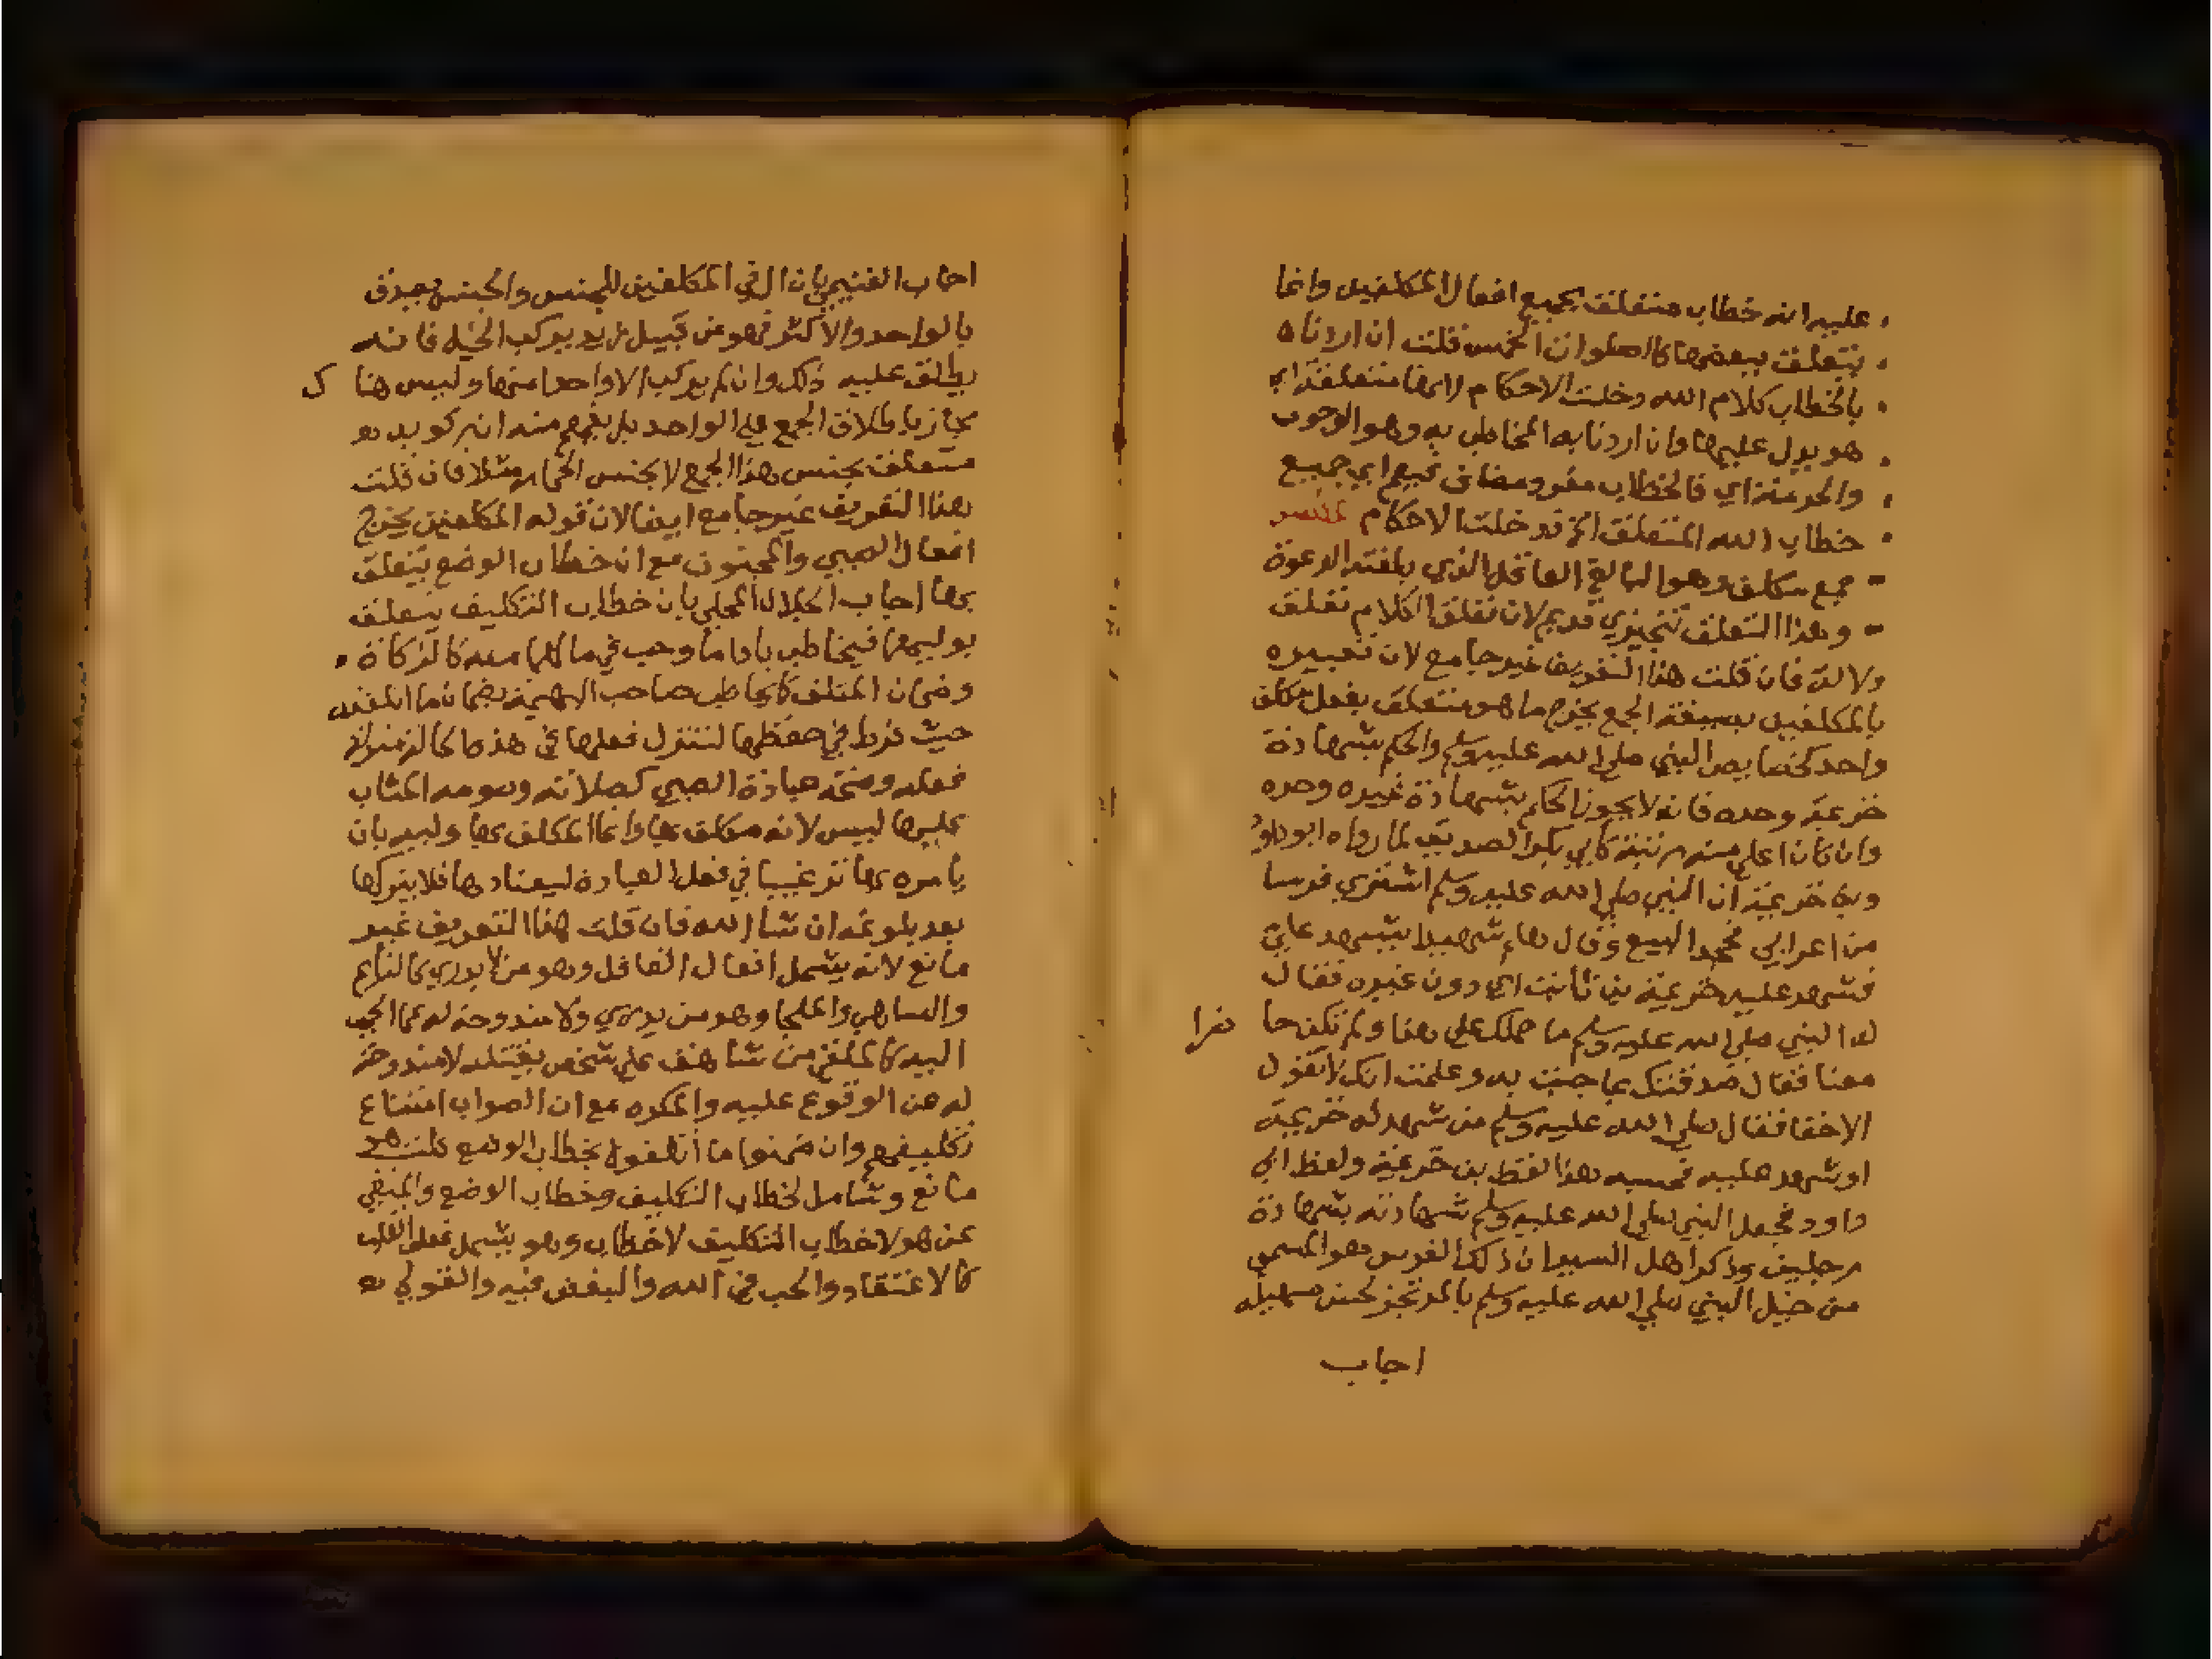 عليه انه خطاب متعلق بجميع افعال المكلفين وانما
يتعلق ببعضها كالصلوات الخمس قلت ان اردناه
بالخطاب كلام الله دخلت الاحكام لانها متعلقة اي
هو يدل عليها وان اردنا به المخاطب به وهو الوجوب
والحرمة اي فالخطاب مفرد مضاف فيعم اي جميع
خطاب الله المتعلق الخ قد دخلت الاحكام
جمع مكلف وهو البالغ العاقل الذي بلغته الدعوة
وهذا التعلق تنجيزي قديم لان تعلق الكلام تعلق
دلالة فان قلت هذا التعريف غير جامع لان تعبيره
بالمكلفين بصيغة الجمع يخرج ما هو متعلق بفعل مكلف
واحد كخصايص النبي صلي الله عليه وسلم والحكم بشهادة
خزيمة وحده فانه لا يجوز الحكم بشهادة غيره وحده
وان كان اعلي منه رتبة كابي بكر الصديق لما رواه ابو داود
خزيمة ان النبي صلي الله عليه وسلم اشتري فرسا
من اعرابي فجحد البيع وقال هلم شهيدا يشهد علي
فشهد عليه خزيمة بن ثابت اي دون غيره فقال
له النبي صلي الله عليه وسلم ما حملك علي هذا ولم تكن حا ضرا
معنا فقال صدقتك بما جيت به وعلمت انك لا تقول
الا حقا فقال صلي الله عليه وسلم من شهد له خزيمة
او شهد عليه فحسبه هذا لفظ بن خزيمة ولفظ ابي
داود فجعل النبي صلي الله عليه وسلم شهادته بشهادة
رجلين وذكر اهل السير ان ذلك الفرس هو المسمي
من خيل النبي صلي الله عليه وسلم بالمرتجز لحسن صهيله
اجاب
اجاب الغنيمي بان ال في المكلفين للجنس والجنس يصدق
بالواحد والاكثر فهو من قبيل زيد يركب الخيل فانه
يطلق عليه ذلك وان لم يركب الا واحدا منها وليس هنا ك
مجاز باطلاق الجمع علي الواحد بل يفهم منه ان ركوبه
متعلق بجنس هذا الجمع لا بجنس الحمار مثلا فان قلت
هذا التعريف غير جامع ايضا لان قوله المكلفين يخرج
افعال الصبي والمجنون مع ان خطاب الوضع يتعلق
بها اجاب الجلال المحلي بان خطاب التكليف يتعلق
بوليهما فيخاطب باداء ما وجب في مالهما منه كالزكاة
وضمان المتلف كما يخاطب صاحب البهيمة بضمان ما اتلفته
حيث فرط في حفظها لتنزل فعلها في هذه الحالة منزلة
فعله وصحة عبادة الصبي كصلاته وصومه المثاب
عليها ليس لانه مكلف بها وانما المكلف بها وليه بان
يامره بها ترغيبا في فعل العبادة ليعتادها فلا يتركها
بعد بلوغه ان شا الله فان قلت هذا التعريف غير
مانع لانه يشمل افعال الغافل وهو من لا يدري كالنايم
والساهي والملجا وهو من يدري ولا مندوحة له عما الجي
اليه كالملقي من شاهق علي شخص يقتله لا مندوحة
له عن الوقوع عليه والمكره مع ان الصواب امتناع
تكليفهم وان ضمنوا ما اتلفوه بخطاب الوضع قلت هو
مانع وشامل لخطاب التكليف وخطاب الوضع والمنفي
عن هولا خطاب التكليف لا خطاب وهو يشمل فعل القلب
كالاعتقاد والحب في الله والبغض فيه والقولي